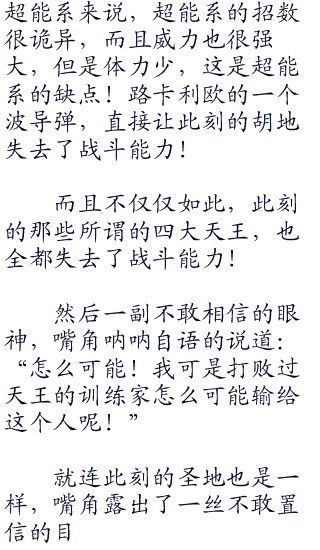 超能系来说，超能系的招数
很诡异，而且威力也很强
大，但是体力少，这是超能
系的缺点！路卡利欧的一个
波导弹，直接让此刻的胡地
失去了战斗能力！
而且不仅仅如此，此刻
的那些所谓的四大天王，也
全都失去了战斗能力！
然后一副不敢相信的眼
神，嘴角呐呐自语的说道：
“怎么可能！我可是打败过
天王的训练家怎么可能输给
这个人呢！”
就连此刻的圣地也是一
样，嘴角露出了一丝不敢置
信的目